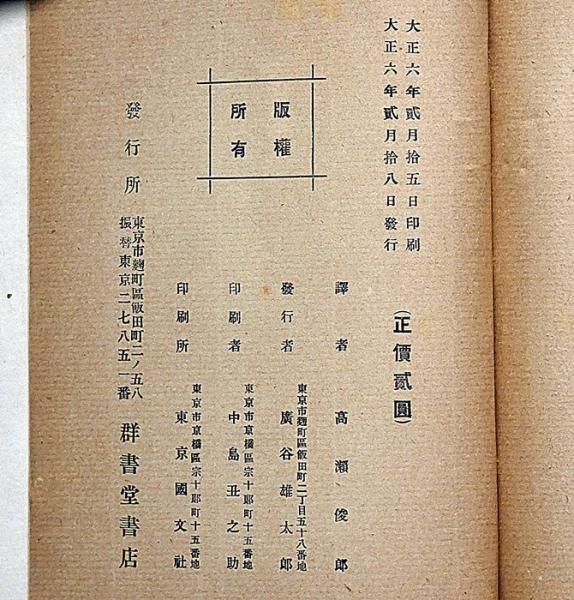 大正六年貳月拾五日印刷
大正六年貳月拾八日發行
(正價貳圓)
版權
所有
譯者 高瀨俊郎
東京市麹町區飯田町二丁目五十八番地
發行者 廣谷雄太郎
東京市京橋區宗十郎町十五番地
印刷者 中島丑之助
東京市京橋區宗十郎町十五番地
印刷所 東京國文社
發行所
東京市麹町區飯田町二ノ五八
振替東京二七八五一番
群書堂書店